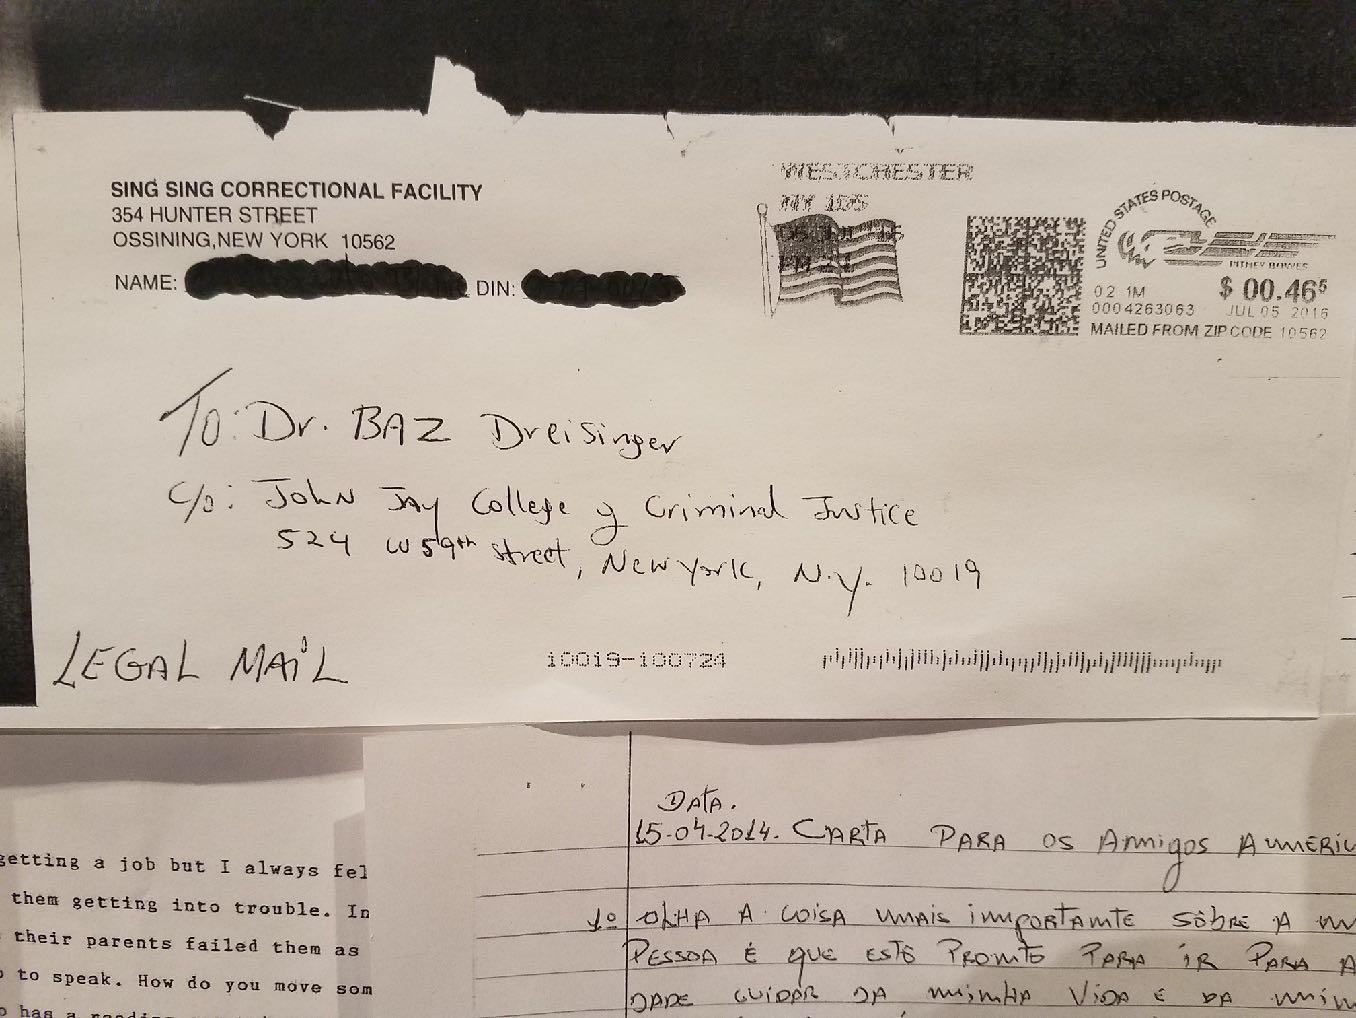 SING SING CORRECTIONAL FACILITY
354 HUNTER STREET
OSSINING, NEW YORK 10562
NAME: DIN:
WESTCHESTER
NY 105
UNITED STATES POSTAGE
PITNEY BOWES
02 1M $ 00.46⁵
0004263063 JUL 05 2016
MAILED FROM ZIP CODE 10562
To: Dr. BAZ Dreisinger
c/o: John Jay College of Criminal Justice
524 W 59th street, New York, N.Y. 10019
LEGAL MAIL
10019-100724
getting a job but I always fel
them getting into trouble. In
their parents failed them as
to speak. How do you move som
has a
DATA.
15-04-2014. CARTA PARA OS AMMIGOS AMERIC
1º OLHA A COISA MAIS IMPORTANTE SÔBRE A M
PESSOA É QUE ESTÔ PRONTO PARA ÍR PARA A
DADE CUIDAR DA MINHA VIDA E DA MIN